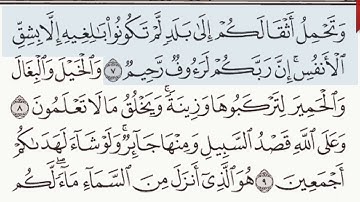 وَتَحْمِلُ أَثْقَالَكُمْ إِلَىٰ بَلَدٍ لَّمْ تَكُونُوا۟ بَٰلِغِيهِ إِلَّا بِشِقِّ
ٱلْأَنفُسِ ۚ إِنَّ رَبَّكُمْ لَرَءُوفٌ رَّحِيمٌ ٧ وَٱلْخَيْلَ وَٱلْبِغَالَ
وَٱلْحَمِيرَ لِتَرْكَبُوهَا وَزِينَةً ۚ وَيَخْلُقُ مَا لَا تَعْلَمُونَ ٨
وَعَلَى ٱللَّهِ قَصْدُ ٱلسَّبِيلِ وَمِنْهَا جَآئِرٌ ۚ وَلَوْ شَآءَ لَهَدَىٰكُمْ
أَجْمَعِينَ ٩ هُوَ ٱلَّذِىٓ أَنزَلَ مِنَ ٱلسَّمَآءِ مَآءً ۖ لَّكُم